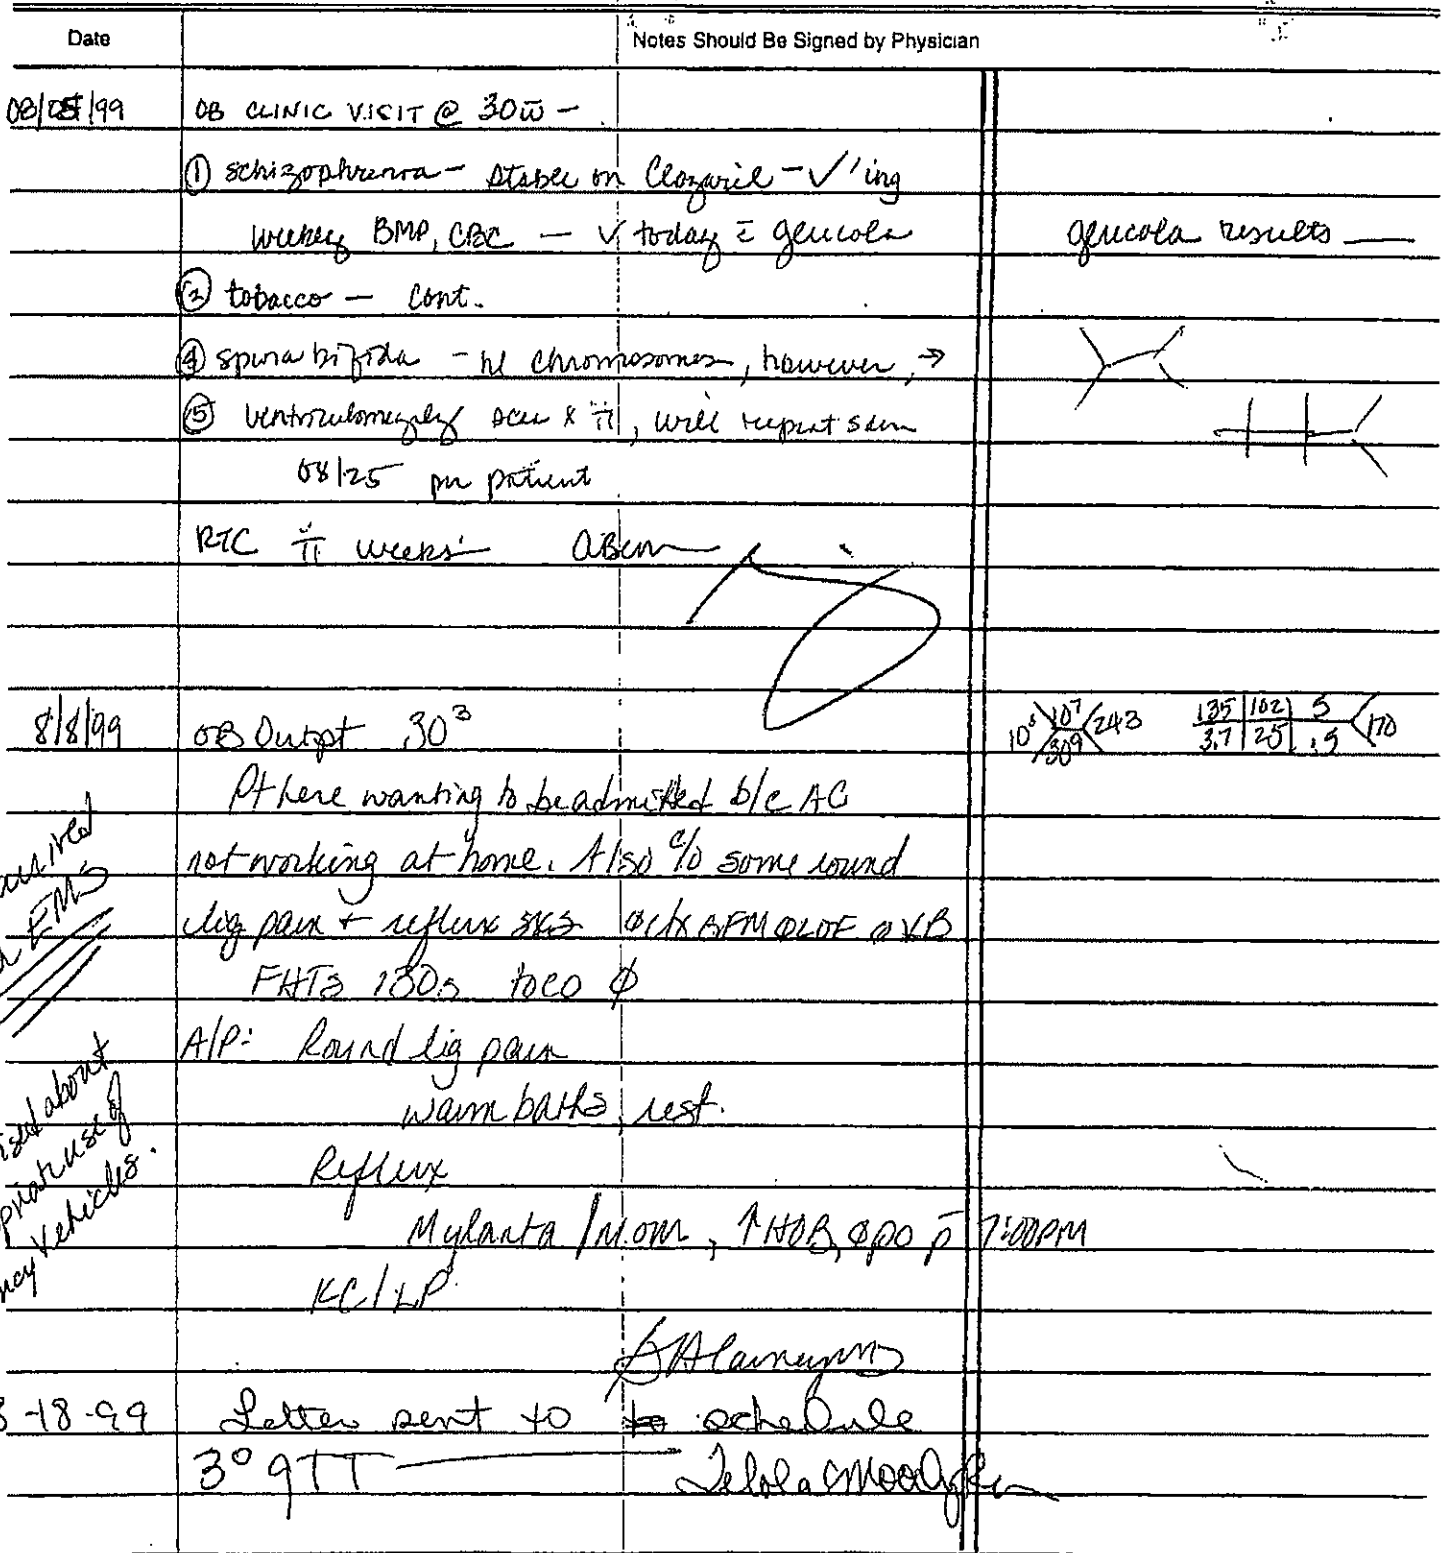 Date Notes Should Be Signed by Physician
08/05/99 OB CLINIC VISIT @ 30w –
① schizophrenia – stable on Clozaril – ✓'ing
weekly BMP, CBC – ✓ today c̄ glucola glucola results ___
② tobacco – cont.
④ spina bifida – nl chromosomes, however, →
⑤ ventriculomegaly seen x ii, will repeat
08/25 per patient
RTC ii weeks
8/8/99 OB Outpt 30³ 10⁶ 107 309 243 135 102 5 3.7 25 .5 170
Pt here wanting to be admitted b/c AC
not working at home. Also c/o some round
lig pain + reflux sxs ⊘ctx ⊕FM ⊘LOF ⊘VB
FHTs 130s toco Ø
EMS
A/P: Round lig pain
about
use of
vehicles.
warm baths, rest.
Reflux
Mylanta / MOM, ↑HOB, Øpo p̄ 7:00PM
KC/LP
8-18-99 Letter sent to schedule
3° gTT